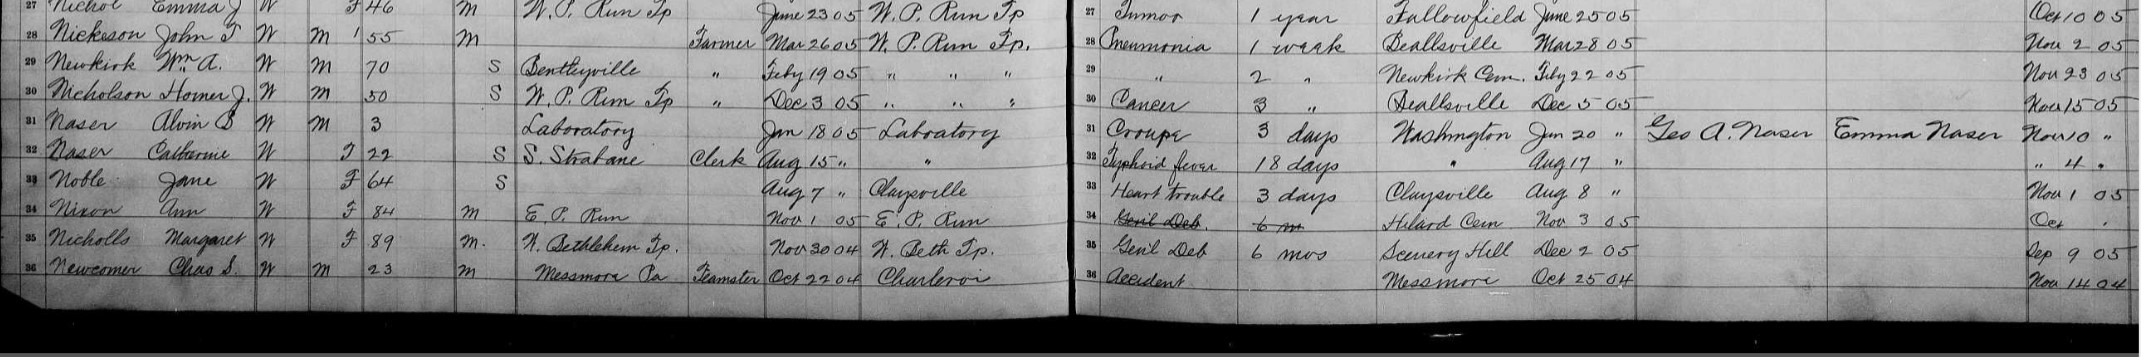 27 Nichol Emma J W F 46 m W. P. Run Tp June 23 05 W. P. Run Tp 27 Tumor 1 year Fallowfield June 25 05 Oct 10 05
28 Nickeson John T W m 55 m Farmer Mar 26 05 W. P. Run Tp. 28 Pneumonia 1 week Beallsville Mar 28 05 Nov 2 05
29 Newkirk Wm A. W m 70 S Bentleyville " Feby 19 05 " " " 29 " 2 " Newkirk Cem. Feby 22 05 Nov 23 05
30 Nicholson Homer J. W m 50 S W. P. Run Tp " Dec 3 05 " " " 30 Cancer 3 " Beallsville Dec 5 05 Nov 15 05
31 Naser Alvin B W m 3 Laboratory Jan 18 05 Labratory 31 Croupe 3 days Washington Jan 20 " Geo A. Naser Emma Naser Nov 10 "
32 Naser Catherine W F 22 S S. Strabane Clerk Aug 15 " " 32 Typhoid fever 18 days " Aug 17 " " 4 "
33 Noble Jane W F 64 S Aug 7 " Claysville 33 Heart trouble 3 days Claysville Aug 8 " Nov 1 05
34 Nixon Ann W F 84 m E. P. Run Nov 1 05 E. P. Run 34 Genil Deb. 6 m Hilard Cem Nov 3 05 Oct
35 Nicholls Margaret W F 89 m. W. Bethlehem Tp. Nov 30 04 W. Beth Tp. 35 Genil Deb 6 mos Scenery Hill Dec 2 05 Sep 9 05
36 Newcomer Chas S. W m 23 m Messmore Pa Teamster Oct 22 04 Charleroi 36 Accident Messmore Oct 25 04 Nov 14 04